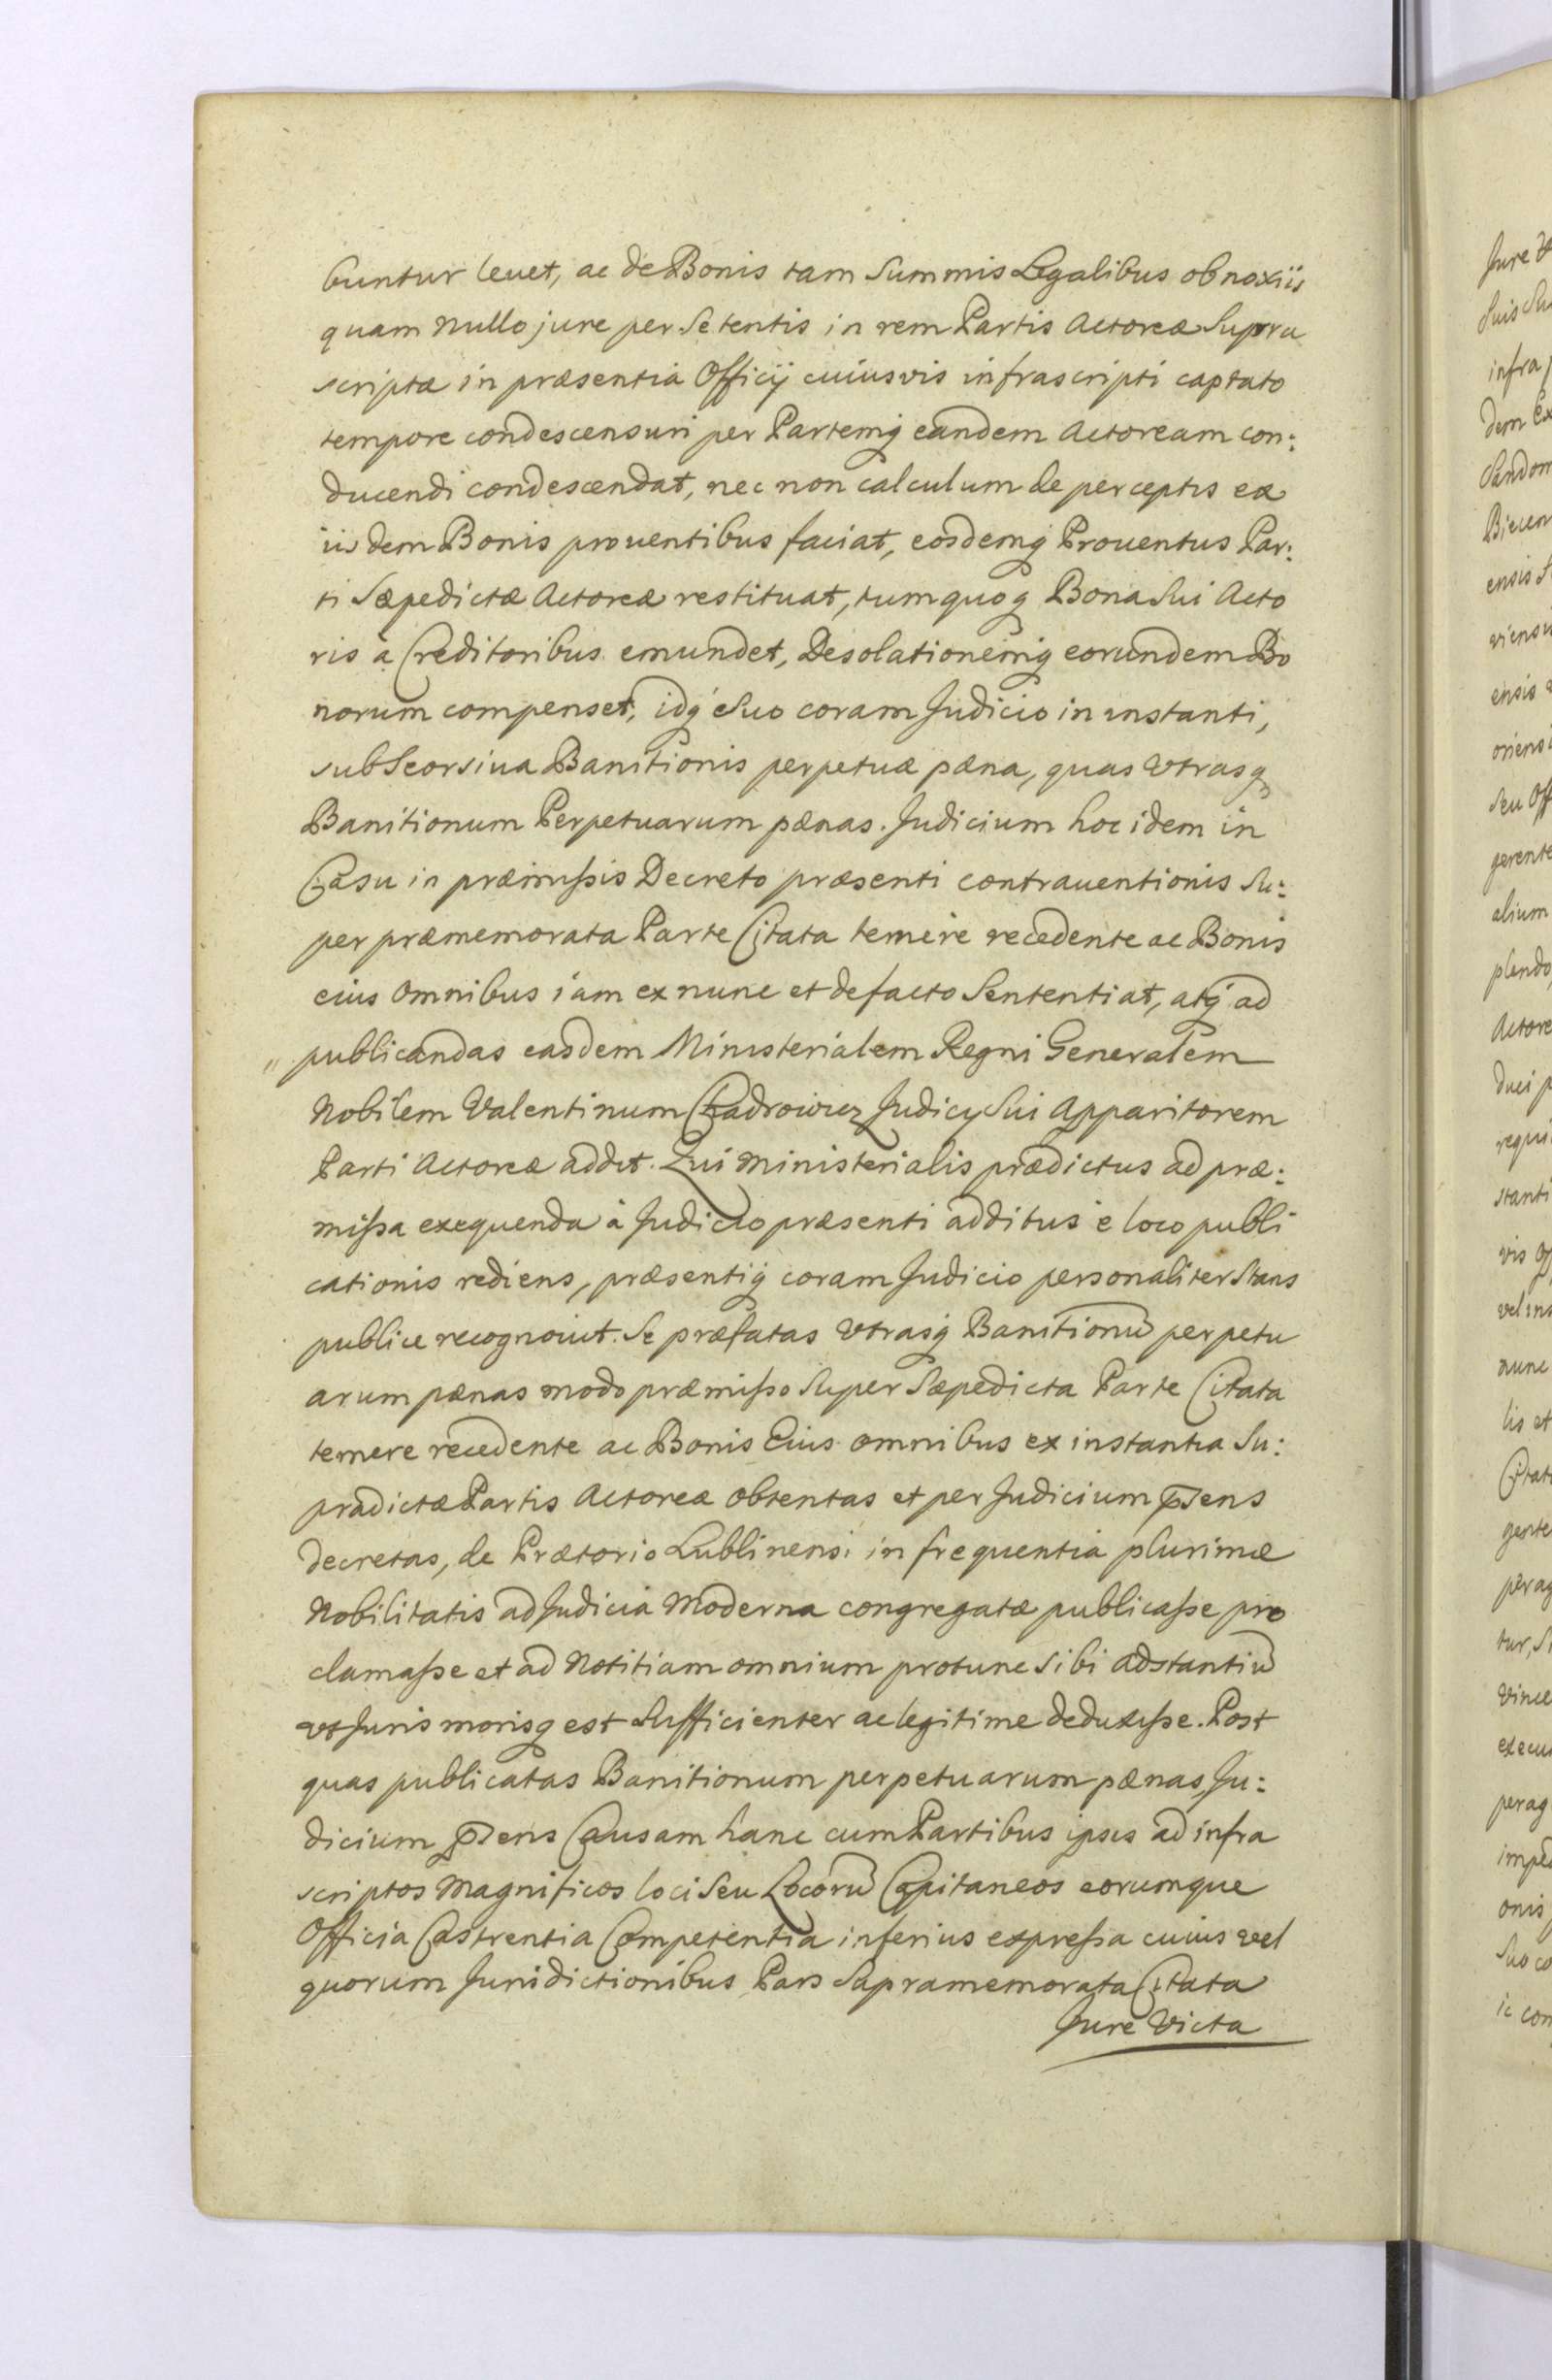 buntur levet, ac de Bonis tam Summis Legalibus obnoxiis
quam nullo jure per se tentis in rem Partis Actoreæ Supra
scriptæ in præsentia Officij cuiusvis infrascripti captato
tempore condescensuri per Partemq eandem Actoream con:
ducendi condescendat, nec non calculum de perceptis ex
iisdem Bonis proventibus faciat, eosdemq Proventus Par:
ti Sæpedictæ Actoreæ restituat, tum quoq Bona Sui Acto
ris à Creditoribus emundet, Desolationemq eorundem Bo
norum compenset, idq Suo coram Judicio in instanti,
sub Seorsiva Banitionis perpetuæ pæna, quas Vtrasq
Banitionum Perpetuarum pænas. Judicium hoc idem in
Casu in præmissis Decreto præsenti contraventionis Su:
per præmemorata Parte Citata temere recedente ac Bonis
eius Omnibus iam ex nunc et de facto Sententiat, atq ad
" publicandas easdem Ministerialem Regni Generalem
Nobilem Valentinum Judicy Sui Apparitorem
Parti Actoreæ addit. Qui Ministerialis prædictus ad præ:
missa exequenda à Judicio præsenti additus è loco publi
cationis rediens, præsentiq coram Judicio personaliter Stans
publice recognovit. Se præfatas Vtrasq Banitionū perpetu
arum pænas modo præmisso Super Sæpedicta Parte Citata
temere recedente ac Bonis Eius omnibus ex instantia Su:
pradictæ Partis Actoreæ Obtentas et per Judicium p̄sens
decretas, de Prætorio Lublinensi in frequentia plurimæ
Nobilitatis ad Judicia Moderna congregatæ publicasse pro
clamasse et ad Notitiam omnium protunc Sibi adstantiū
vt Juris morisq est Sufficienter ac legitime deduxisse. Post
quas publicatas Banitionum perpetuarum pænas, Ju:
dicium p̄sens Causam hanc cum Partibus ipsis ad infra
scriptos Magnificos loci Seu Locorū Capitaneos eorumque
Officia Castrentia Competentia inferius expressa cuius vel
quorum Jurisdictionibus Pars Supramemorata Citata
Jure Victa